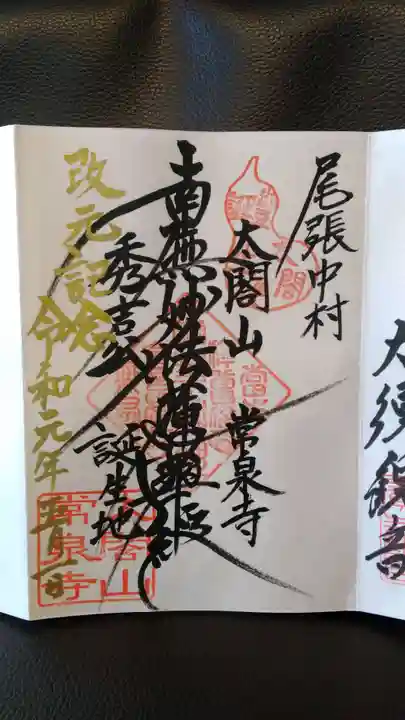 尾張中村
太閤山 常泉寺
南無妙法蓮華経
秀吉公 誕生地
改元記念
令和元年五月一日
太閤山
常泉寺
大須観音